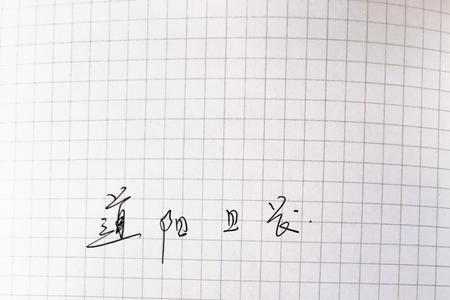 道阻且长.